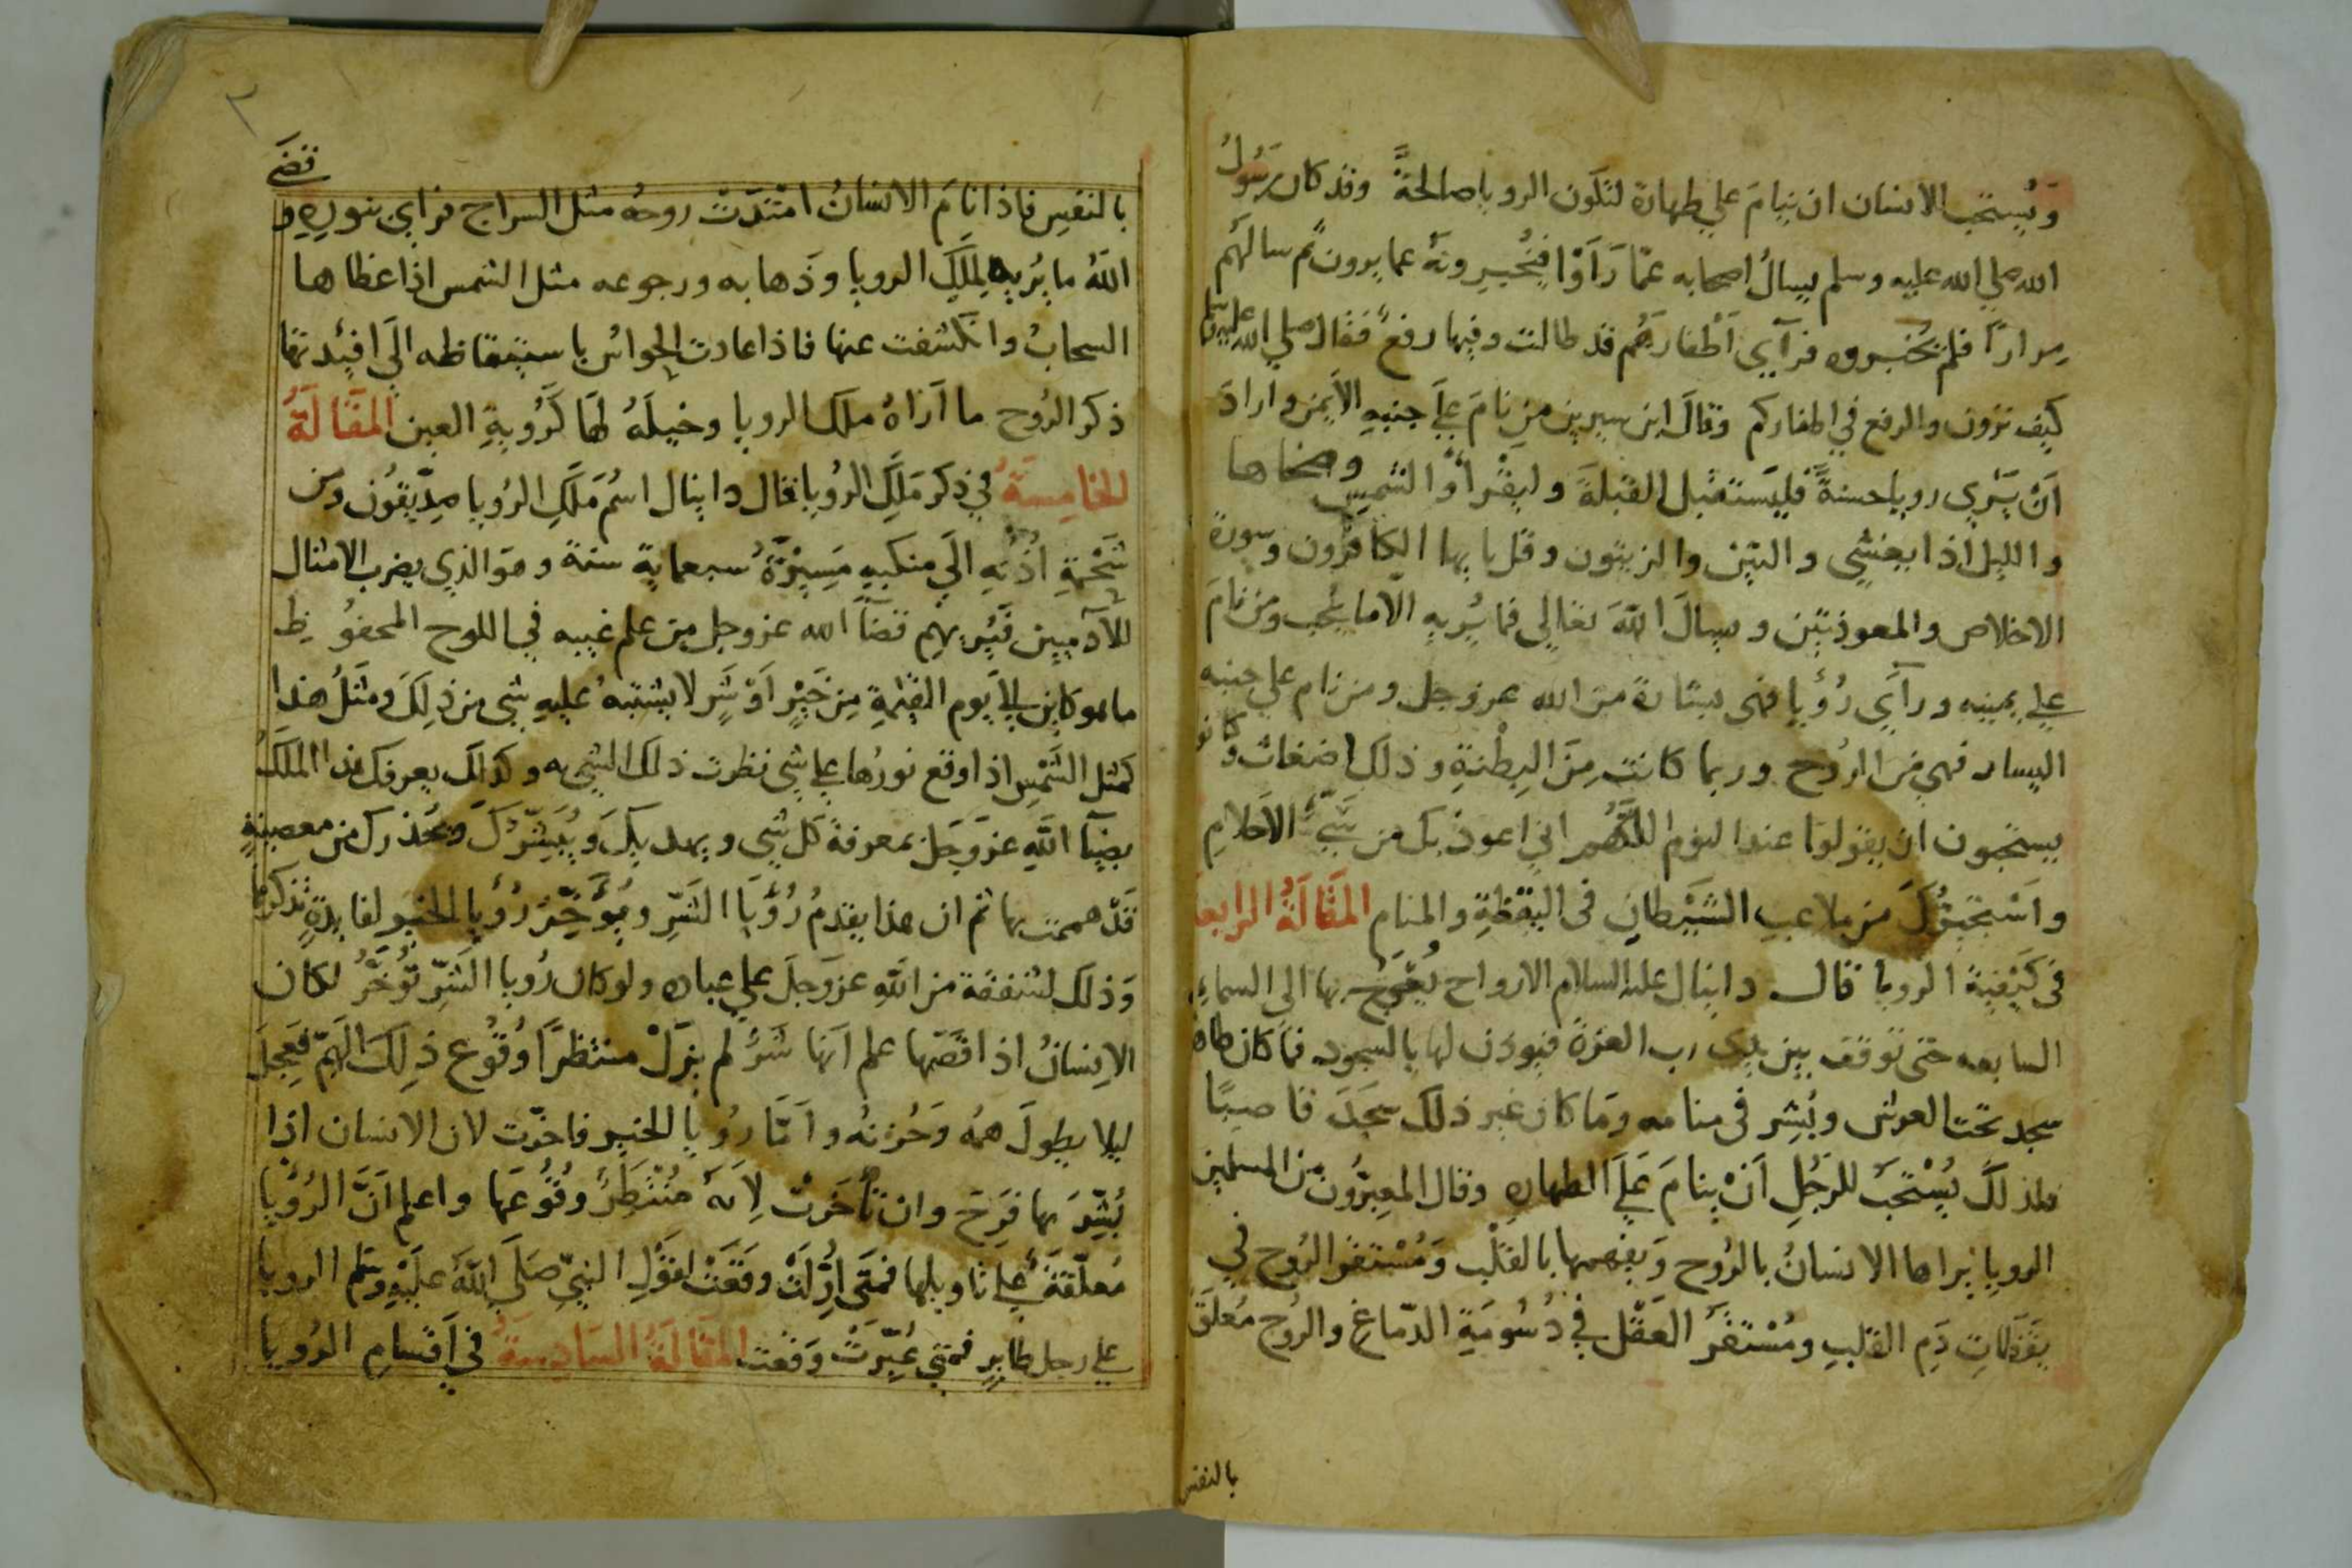 وَيُستحب الانسان ان ينامَ علي طهارة لتكون الرويا صالحةً وقد كان رسُولُ
الله صلي الله عليه وسلم يسالُ اصحابه عمّا رَاَوْا فيُخبِرونَهُ عما يرون ثم سالهُم
مِرارًا فلم يُخبروه فرآي اَظفارَهُم قد طالت وفيها رفع فقال صلي الله عليه وسلم
كيف ترون والرفع في اظفاركم وقالَ ابن سيرين من نامَ عليَ جنبهِ الايمن واراد
اَنْ يَرَي رويا حسنةً فليَستقبل القبلةَ وليقْراْ والشمس وضحاها
والليل اذا يغشي والتين والزيتون وقل يا يها الكافرون وسورة
الاخلاص والمعوذتين ويسالَ اللهَ تعالي فما يُريهِ الا ما يُحب ومن نامَ
علي يمينه ورآي رُؤيا فهى بشارة من الله عز وجل ومن نام علي جنبه
اليسار فهي مِنَ الرُوح وربما كانت مِنَ البِطْنةِ وذلك اضغاث وكانو
يستحبون ان يقولوا عند النوم اللَّهُم اني اعوذ بك من سَيّئ الاَحلامِ
واَستجيرُكَ من ملاعب الشَيْطانِ فى اليقظةِ والمنام المقَالَةُ الرابعة
فى كَيْفية الرويا قال دانيال عليه السلام الارواح يُعْرَجُ بها الى السماءِ
السابعه حتى توقف بين يدى رب العزة فيوذن لها بالسجود فما كان طاه
سجد تحت العرش وبُشِر فى منامه وَما كان غير ذلك سجَدَ قاصيًا
فلذلكَ يُسْتحبُ للرجُلِ اَنْ ينامَ عَليَ الطهارةِ وقال المعبِرُون من المسلمين
الرويا يَراها الانسانُ بالرُوح وَيفهمها بالقلْبِ وَمُسْتقرُ الرُوح في
نقطاتِ دَمِ القلبِ ومُسْتقرُ العَقْل في دُسُومَةِ الدّماغِ والروح مُعلقَ
بالنفس
٣
قضَي
بالنفسِ فاذا نامَ الانسانُ امْتدَّتْ روحهُ مثل السراج فراي بنورهِ و
اللهُ ما يُريهِ مَلكِ الرويا وذَهابه ورجوعه مثل الشمس اذا غطاها
السحابُ وانكشفت عنها فاذا عادت الحواسُ باستيقاظه الَي افئدتها
ذكر الرُوح ما اَراهُ ملك الرويا وخيلَهُ لها كَرُوبةِ العين المقَالَةُ
الخامِسَة في ذِكر مَلَكِ الرُويا قال دانيال اسْمُ مَلَكِ الرُويا صِدّيقُون ومن
شَحْمةِ اُذُنهِ الَي منكبيهِ مَسِيرَةُ سبعماية سنة وهو الذي يضرب الامثال
للآدميين فيُريهُم قضآَ الله عز وجل من علم غيبه في اللوح المحفوُظِ
ما هو كاين الَي يوم القيمةِ مِن خَيْرٍ اَوْ شَرٍ لا يشتبهُ عليهِ شى من ذلِكَ ومثلُ هذا
كمثل الشَمْسِ اذا وقع نورُها علي شي نظرت ذلك الشي به وكذلك يعرفك هذا الملَكُ
بضيآَ اللهِ عز وَجَل بمعرفة كل شي ويهديكَ وَيُبَشّرُكَ ويُحذرك من معصيةٍ
قَدْ هممت بها ثم ان هذا يقدمُ رُؤيَا الشَرّ ويُؤَخِّرُ رُؤيا الخير لفايدةٍ نذكرها
وَذلك لشفقة من اللهِ عز وَجلَ علي عباده ولو كان رُويا الشَرّ تُؤخَّرُ لكان
الاِنسانُ اذا قَصّها علم اَنها شَرُ لم يزلْ منتظرًا وُقوُع ذلِكَ الهَمّ فعجِلَ
ليلا يطولَ همهُ وَحُزنهُ واَمَّا رُويا الخير فاخرت لان الانسان اذا
بُشِّرَ بها فَرِحَ وان تأخرَتْ لاِنهُ مُنْتظِرُ وقُوُعَها واعلم اَنَّ الرُؤيَا
مُعلّقةُ علي تاويلها فمتَي اُوِّلَتْ وقَعَتْ لقَولِ النبيّ صَلَي اللهُ علَيْهِ وسَلم الرويا
علي رجل طايرٍ فمتي عُبِّرَتْ وَقعت المقَالَةُ السَادِسَةُ في اَقسامِ الرُويا